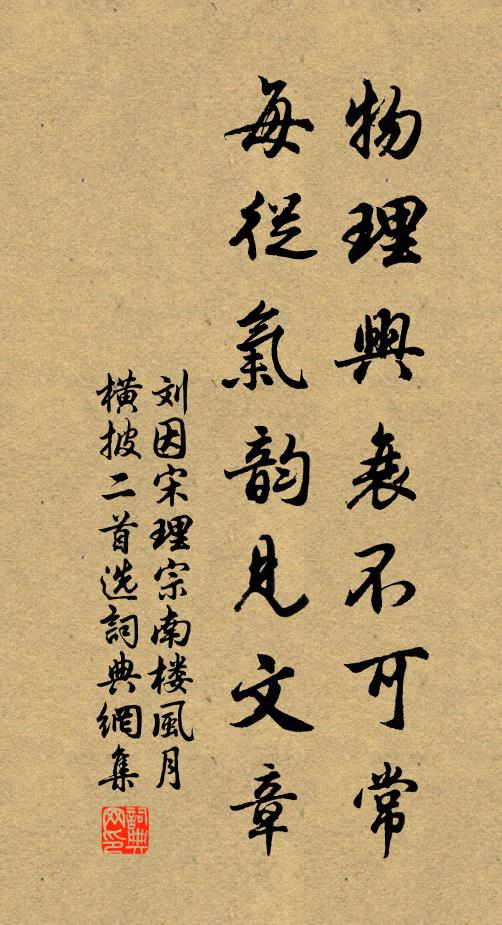 物理興衰不可常
每從氣韵見文章
刘因宋理宗南楼風月
橫披二首选詞典網集
詞典
网印